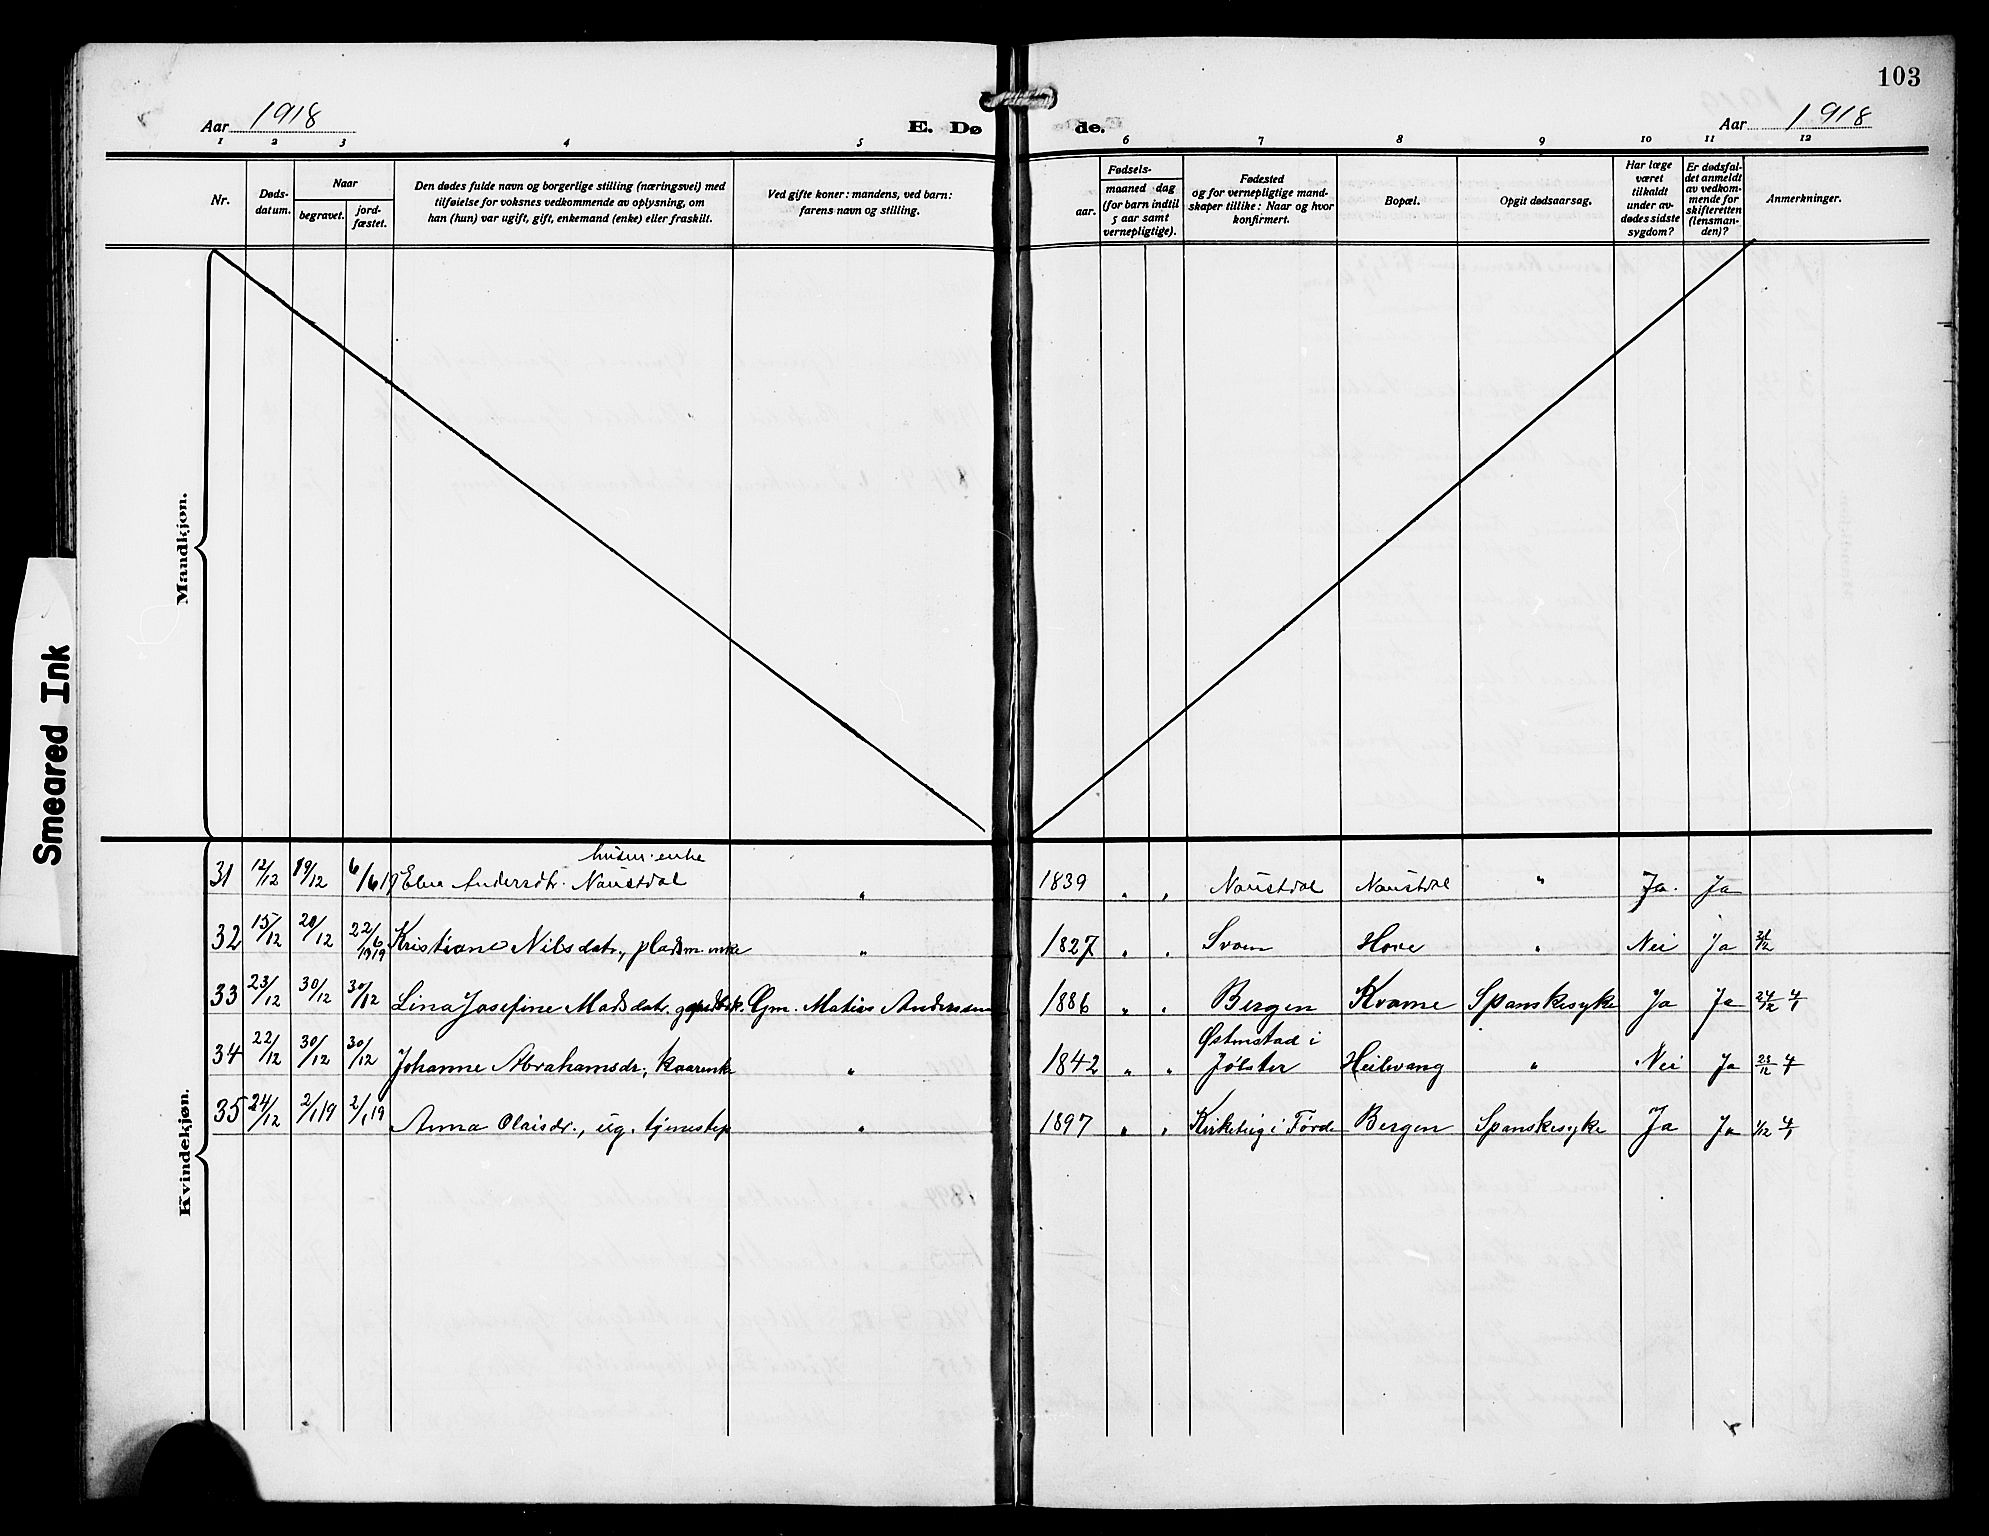 103
Aar 1918
E. Dø
de.
Aar 1918
1 2 3 4 5 6 7 8 9 10 11 12
Nr.
Døds-
datum.
Naar
begravet.
jord-
fæstet.
Den dødes fulde navn og borgerlige stilling (næringsvei) med
tilføielse for voksnes vedkommende av oplysning, om
han (hun) var ugift, gift, enkemand (enke) eller fraskilt.
Ved gifte koner: mandens, ved barn:
farens navn og stilling.
Fødsels-
aar.
maaned dag
(for barn indtil
5 aar samt
vernepligtige).
Fødested
og for vernepligtige mand-
skaper tillike: Naar og hvor
konfirmert.
Bopæl.
Opgit dødsaarsag.
Har læge
været
tilkaldt
under av-
dødes sidste
sygdom?
Er dødsfal-
det anmeldt
av vedkom-
mende for
skifteretten
(lensman-
den)?
Anmerkninger.
Mandkjøn.
Smeared Ink
Kvindekjøn.
31 12/12 19/12 6/6 19 Andersdtr. Naustdal " 1839 " " Naustdal Naustdal " Ja. Ja
32 15/12 20/12 22/6 1919 Kristiane Nilsdatr., pladsm. enke " 1827 " " Svoen Hove " Nei Ja 21/12
33 23/12 30/12 30/12 Lina Josefine Madsdatr. Gm. Matias Anderssen 1886 " " Bergen Kvame Spanskesyke Ja Ja 24/12 4/1
34 22/12 30/12 30/12 Johanne Abrahamsdr., kaarenke " 1842 " " Østenstad i
Jølster Heilevang " Nei Ja 23/12 4/1
35 24/12 2/1 19 2/1 19 Anna Olaisdr., ug. tjenestep " 1897 " " Kirkeeig i Førde Bergen Spanskesyke Ja Ja 1/12 4/1